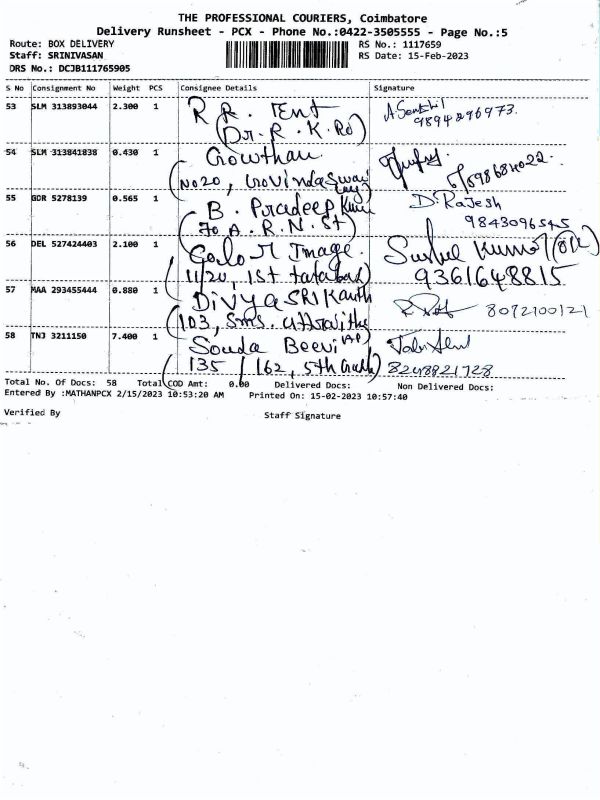 THE PROFESSIONAL COURIERS, Coimbatore
Delivery Runsheet - PCX - Phone No.:0422-3505555 - Page No.:5
Route: BOX DELIVERY RS No.: 1117659
Staff: SRINIVASAN RS Date: 15-Feb-2023
DRS No.: DCJB111765905
S No Consignment No Weight PCS Consignee Details Signature
53 SLM 313893044 2.300 1 R R. Tent A Senthil
(Dr. R. K. Rd) 9894296973.
54 SLM 313841838 0.430 1 Gowthau
(No 20, Govindaswai
55 GDR 5278139 0.565 1 B. Pradeep D. Rajesh
(70 A. R. N. St) 9843096545
56 DEL 527424403 2.100 1 Color Image Sushil Kumar
11/20, 1st tatabad) 9361648815
57 MAA 293455444 0.880 1 Divya SRIKanth
(103, Sms. 8072100121
58 TNJ 3211150 7.400 1 Souda Beevi
(135 / 162, 5th 8248821728
Total No. Of Docs: 58 Total COD Amt: 0.00 Delivered Docs: Non Delivered Docs:
Entered By :MATHANPCX 2/15/2023 10:53:20 AM Printed On: 15-02-2023 10:57:40
Verified By Staff Signature